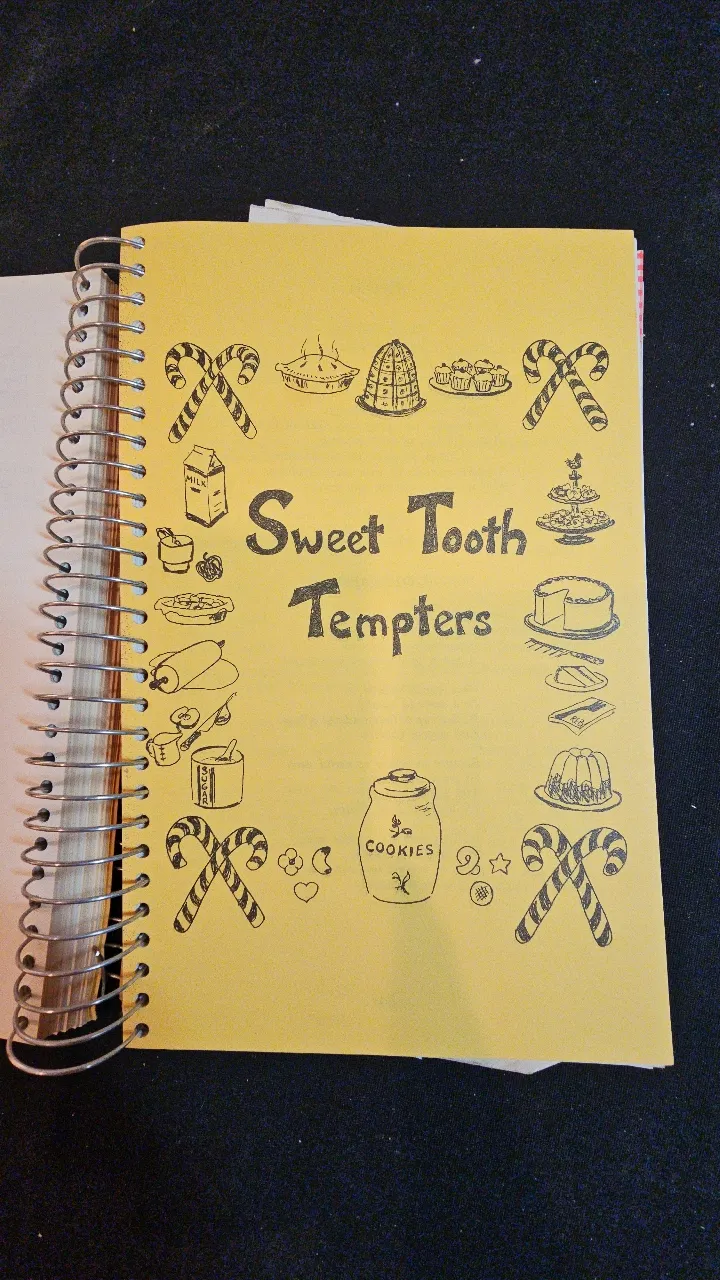 MILK
Sweet Tooth
Tempters
SUGAR
COOKIES